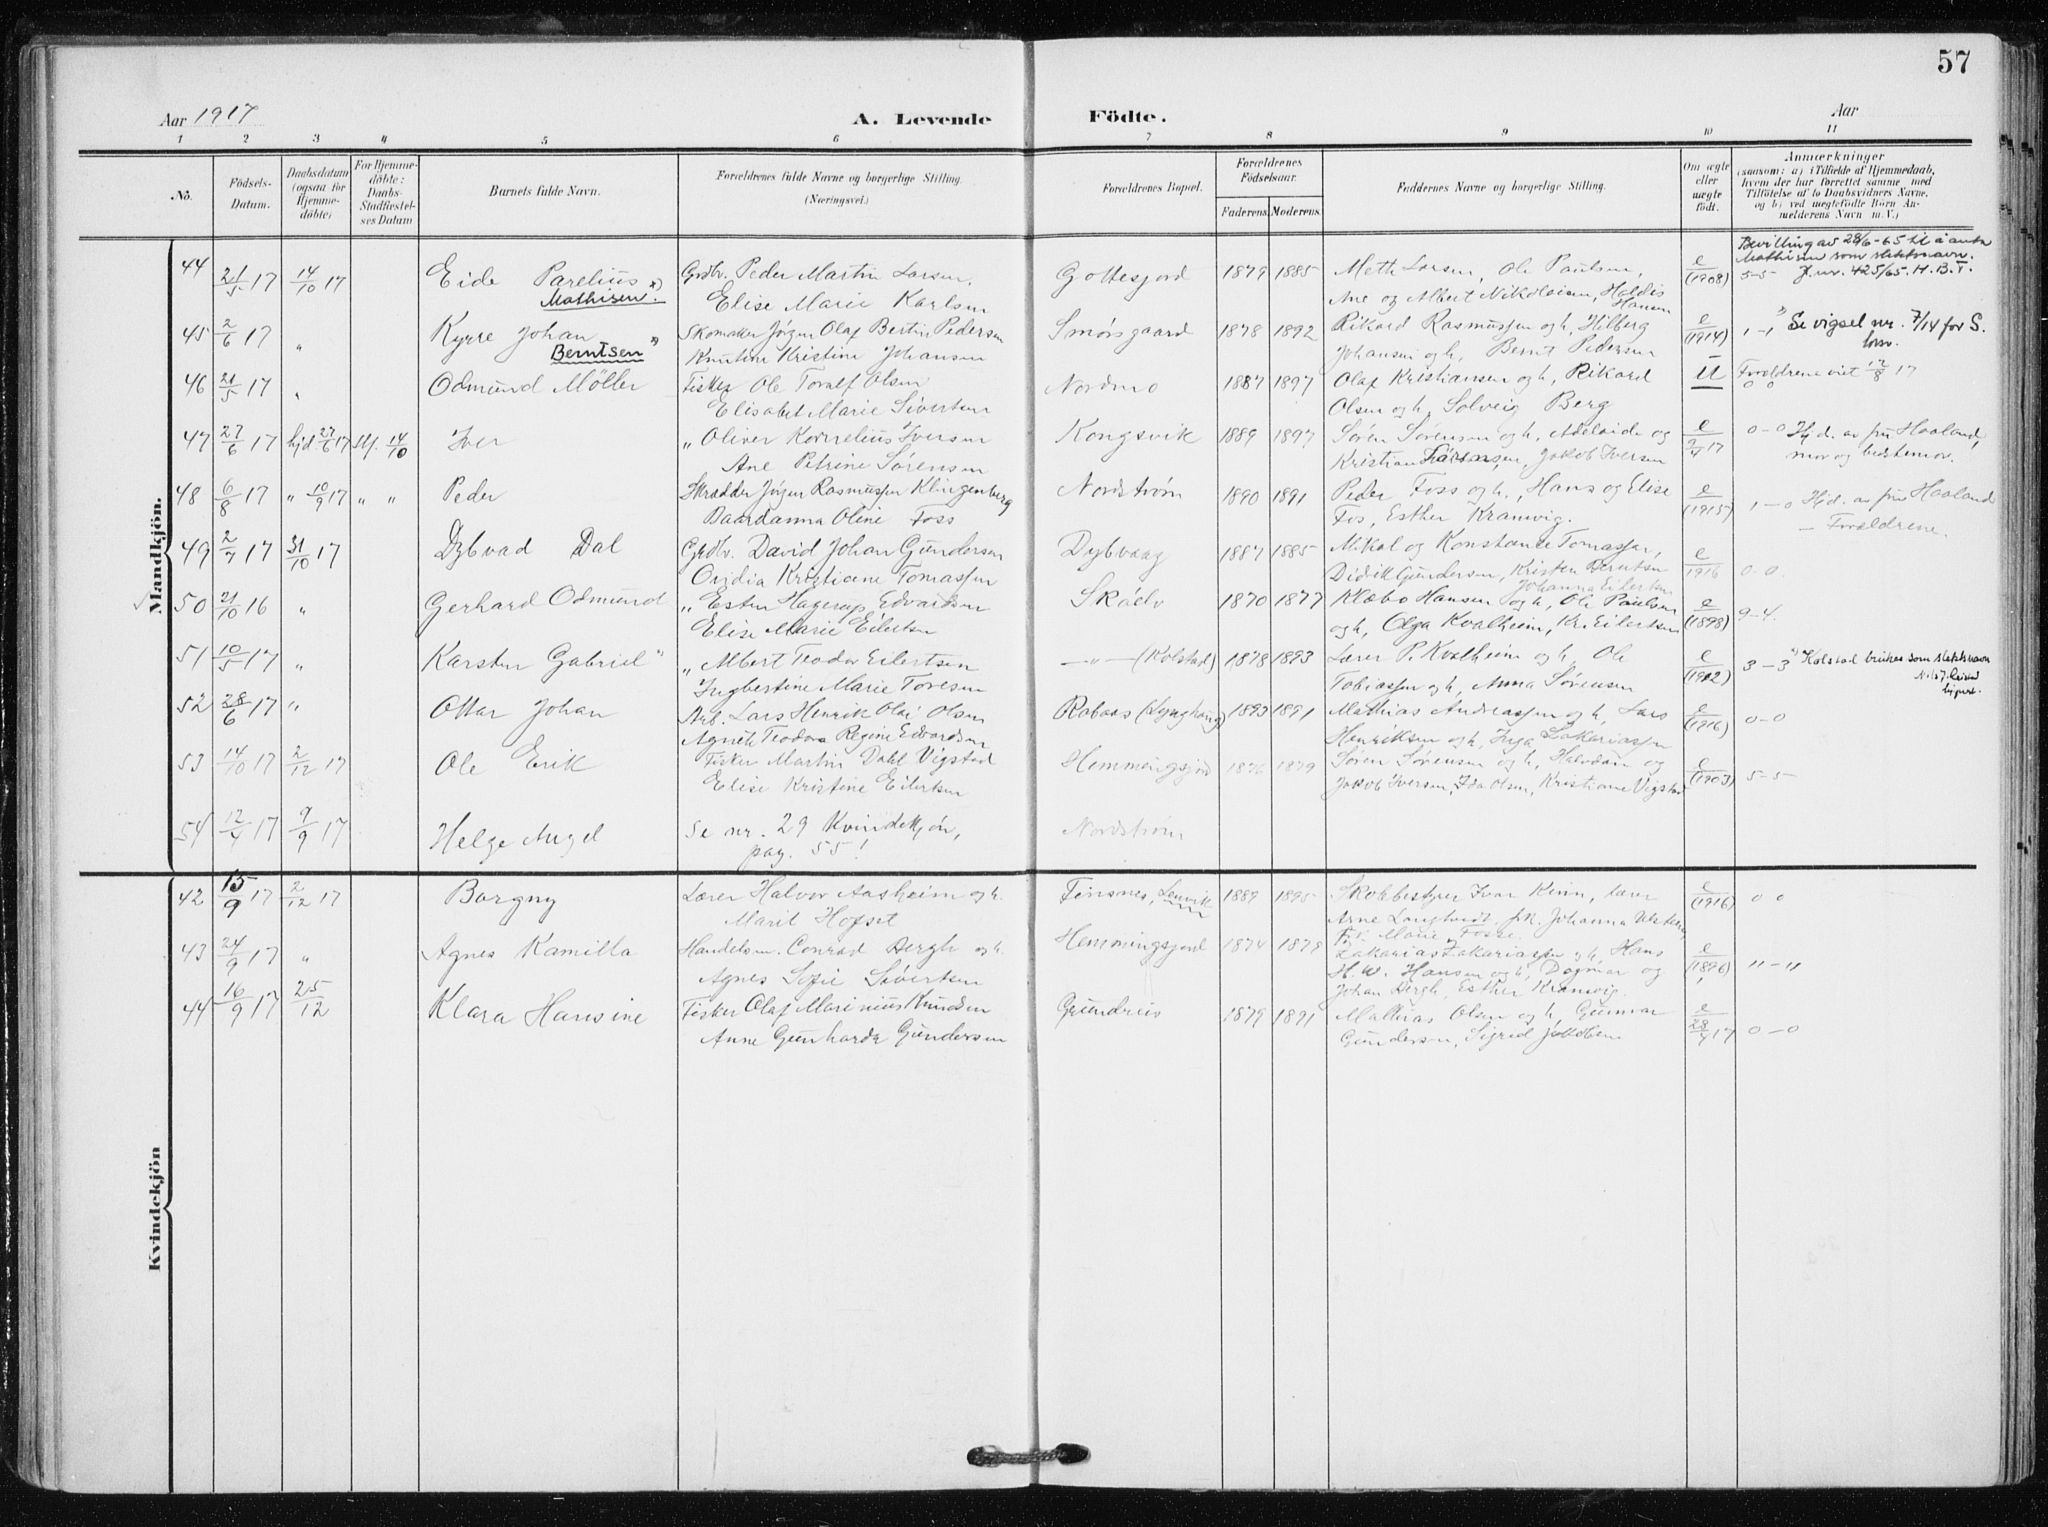 57
Aar 1917 A. Levende Födte. Aar
1 2 3 4 5 6 7 8 9 10 11
No. Födsels-Datum. Daabsdatum (ogsaa for Hjemmedöbte) For Hjemmedöbte: Daabs-Stadfæstelses Datum Barnets fulde Navn. Forældrenes fulde Navne og borgerlige Stilling. (Næringsvei.) Forældrenes Bopæl. Forældrenes Födselsaar. Faderens. Moderens. Faddernes Navne og borgerlige Stilling. Om ægte eller uægte født. Anmærkninger (saasom: a) i Tilfælde af Hjemmedaab, hvem der har forrettet samme, med Tilföielse af to Daabsvidners Navne, og b) ved uægtefödte Börn Anmelderens Navn m. V.)
Mandkjön.
Bevilling av 28/6-65 til å anta
Mathisen som slektsnavn.
44 21/5 17 14/10 17 Eide Parelius x) Grdbr. Peder Martin Larsen, Gottesjord 1879 1885 Meth Larsen, Ole Paulsen, e/(1908) 5-5 J.nr. 425/65. H.B.T.
Mathisen. Elise Marie Karlsen Ane og Albert Nikolaisen, Haldis Hansen
45 2/6 17 " Kyrre Johan Skomaker Jörgen Olaf Bertin Pedersen Smörsgaard 1878 1892 Rikard Rasmussen og h, Hilberg e/(1914) 1-1 x) Se vigsel nr. 7/14 for S.
Berntsen x) Kristine Johansen Johansen og h, Bernt Pedersen
46 21/5 17 " Odmund Möller Fisker Ole Toralf Olsen Nordmo 1887 1897 Olaf Kristiansen og h, Rikard U Forældrene viet 12/8 17
Elisabet Marie Sivertsen Olsen og h, Solveig Berg 0 0
47 27/6 17 hjd. 27/6 17 Stf. 14/10 Iver " Oliver Kornelius Iversen Kongsvik 1889 1897 Sören Sörensen og h, Adelaide og e/ 17 0-0 Hjd. av fru Haaland,
Ane Petrine Sörensen Kristian Sörensen, Jakob Iversen mor og bestemor.
48 6/8 17 " 10/9 17 " " Peder Skrædder Jörgen Rasmussen Klingenberg Nordström 1890 1891 Peder Foss og h., Hans og Elise e/(1915) 1-0 Hjd. av fru Haaland
Baardanna Oline Foss Fos, Esther Kramvig. - Forældrene.
49 2/7 17 31/10 17 Dybvad Dal Grdbr. David Johan Gundersen Dybvaag 1887 1885 Mikal og Konstance Tomassen, e/1916 0-0
Ovidia Kristiane Tomassen Didrik Gundersen, Kristen Berntsen
Johanna Eilertsen
50 21/10 16 " Gerhard Odmund " Esten Hagerup Edvardsen Skáelv 1870 1877 Klæbo Hansen og h, Ole Paulsen e/(1898) 9-4.
Elise Marie Eilertsen og h, Olga Kvalheim, Kr. Eilertsen
51 10/5 17 " Karsten Gabriel x) " Albert Teodor Eilertsen -"- (Kolstad) 1878 1893 Lærer P. Kvalheim og h, Ole e/(1912) 3-3 x) Kolstad brukes som slektsnavn
Ingbertine Marie Toresen Tobiassen og h, Anna Sörensen
52 28/6 17 " Ottar Johan Arb. Lars Henrik Olaf Olsen Rabaas (Lynghaug) 1893 1891 Mathias Andreassen og h, Lars e/(1916) 0-0
Agnete Teodora Regine Edvardsen Henriksen og h, Inga Zakariassen
53 14/10 17 2/12 17 Ole Erik Fisker Martin Dahl Vigstad Hemmingsjord 1876 1879 Sören Sörensen og h, Halvdan og e/(1903) 5-5
Elise Kristine Eilertsen Jakob Iversen, Ida Olsen, Kristiane Vigstad
54 12/4 17 9/9 17 Helge Angel Se nr. 29 Kvindekjön, Nordström
pag. 55!
Kvindekjön
42 15/9 17 2/12 17 Borgny Lærer Halvor Aasheim og h. Finsnes, Lenvik 1889 1895 Skolebestyrer Ivar Kinn, lærer e/(1916) 0 0
Marit Hofset Arne Langtvedt, frk. Johanna
Frk. Marie Fosse.
43 24/9 17 " Agnes Kamilla Handelsm. Conrad Bergh og h. Hemmingsjord 1874 1878 Zakarias Zakariassen og h, Hans e/(1896) "-"
Agnes Sofie Sivertsen H.W. Hansen og h, Dagmar og
Johan Bergh, Esther Kramvig
44 16/9 17 25/12 Klara Hansine Fisker Olaf Marinius Knudsen Grundnes 1879 1891 Mathias Olsen og h, Gunnar e/ 17 0-0
Anne Gunharda Gundersen Gundersen, Sigrid Jakobsen